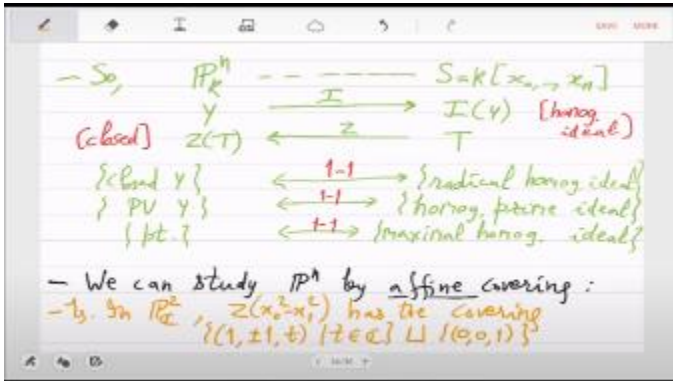 - So, ℙⁿ_K - - - --- S=k[x₀,..,xₙ]
Y I→ I(Y) [homog. ideal]
[closed] Z(T) ←Z T
{closed Y} ←1-1→ {radical homog. ideal}
{PV Y} ←1-1→ {homog. prime ideal}
{pt.} ←1-1→ {maximal homog. ideal}
- We can study ℙⁿ by affine covering :
In ℙ²_ℂ, Z(x₀²-x₁²) has the covering
{(1, ±1, t) | t∈ℂ} ⊔ {(0,0,1)}